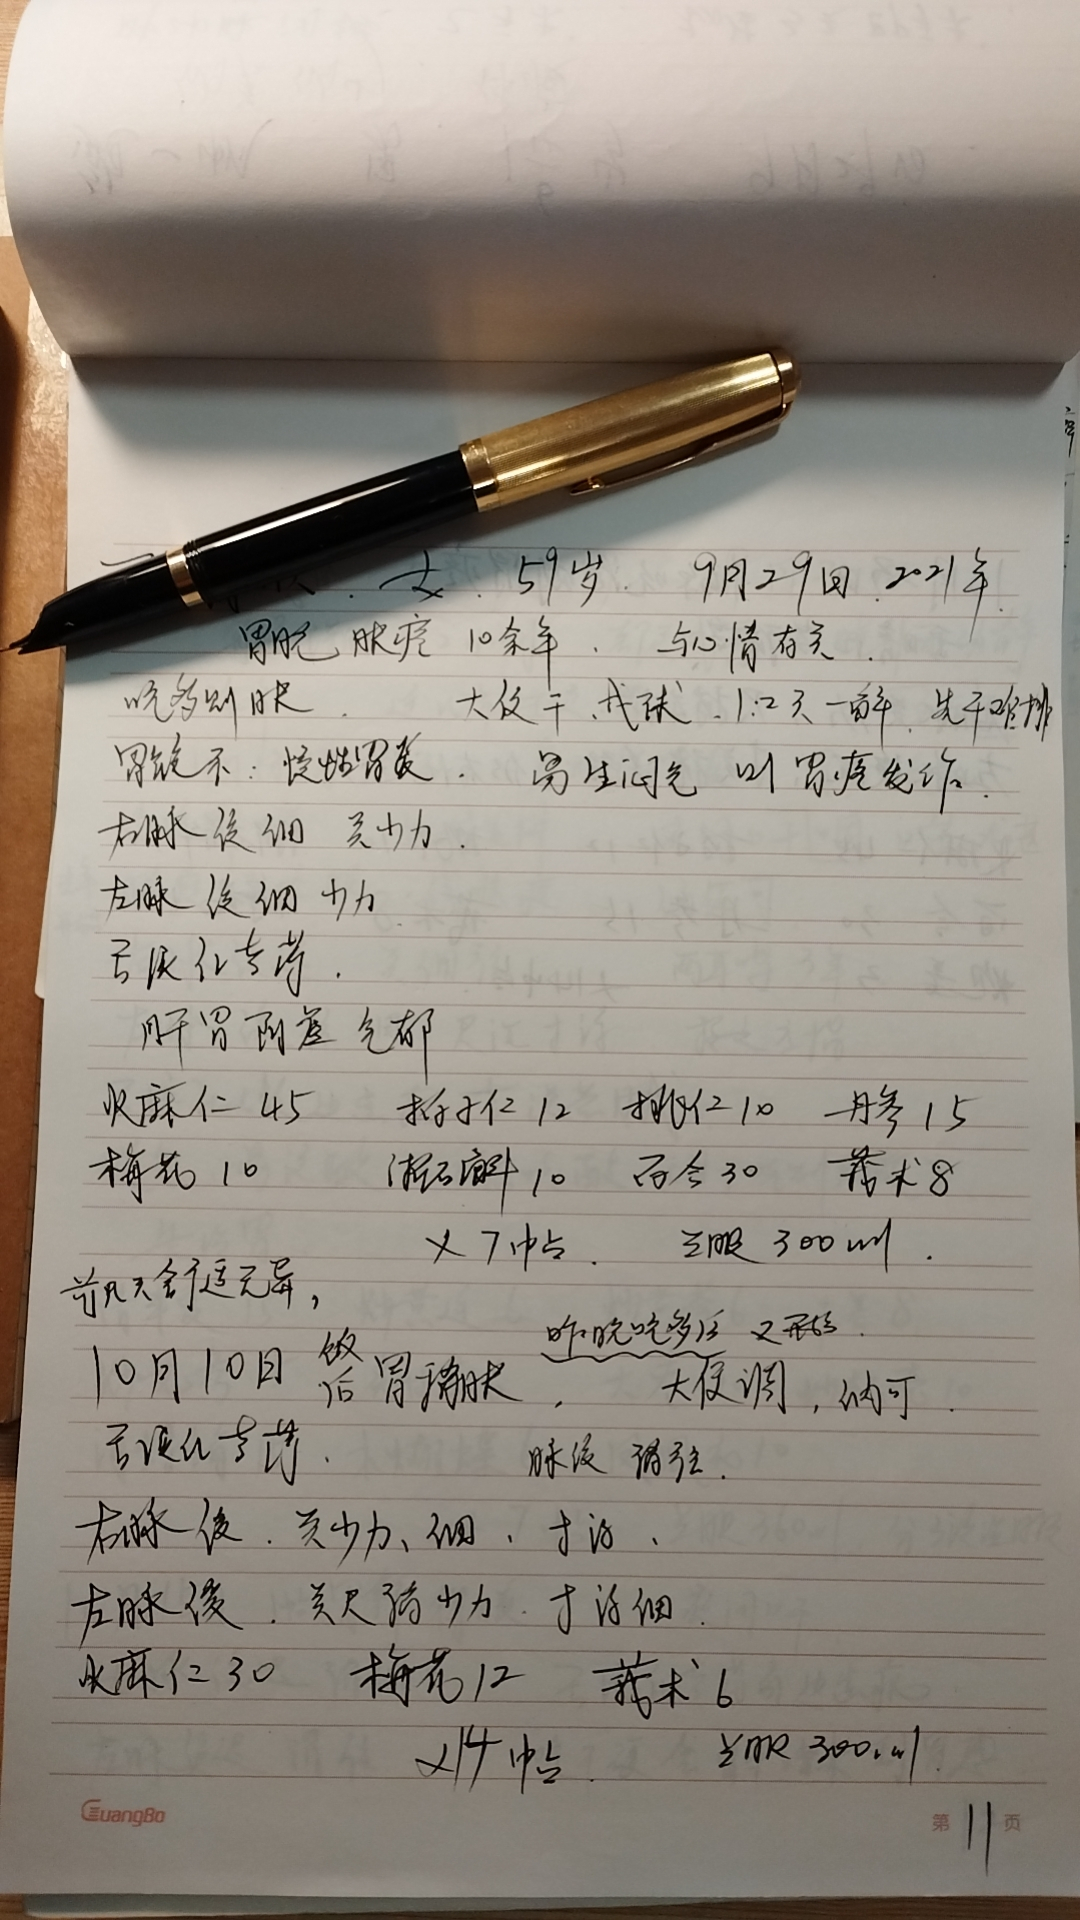 女. 59岁. 9月29日.2021年.
胃脘胀疼10余年. 与心情有关.
吃多则胀. 大便干、成球. 1:2天一解. 先干难排
胃镜示:慢性胃炎. 易生闷气 则胃疼发作.
右脉缓细 关少力.
左脉缓细少力
舌淡红苔薄.
肝胃阴虚 气郁
火麻仁45 柏子仁12 桃仁10 丹参15
梅花10 石斛10 百合30 莪术8
×7帖. 每服300ml.
前几天舒适无异,
昨晚吃多后又开始.
10月10日 饭后胃痛胀, 大便调,纳可.
舌淡红苔薄. 脉缓
右脉缓. 关少力、细、寸浮、
左脉缓. 关尺弱少力. 寸浮细.
火麻仁30 梅花12 莪术6
×14帖. 每服300ml.
GuangBo
第11页